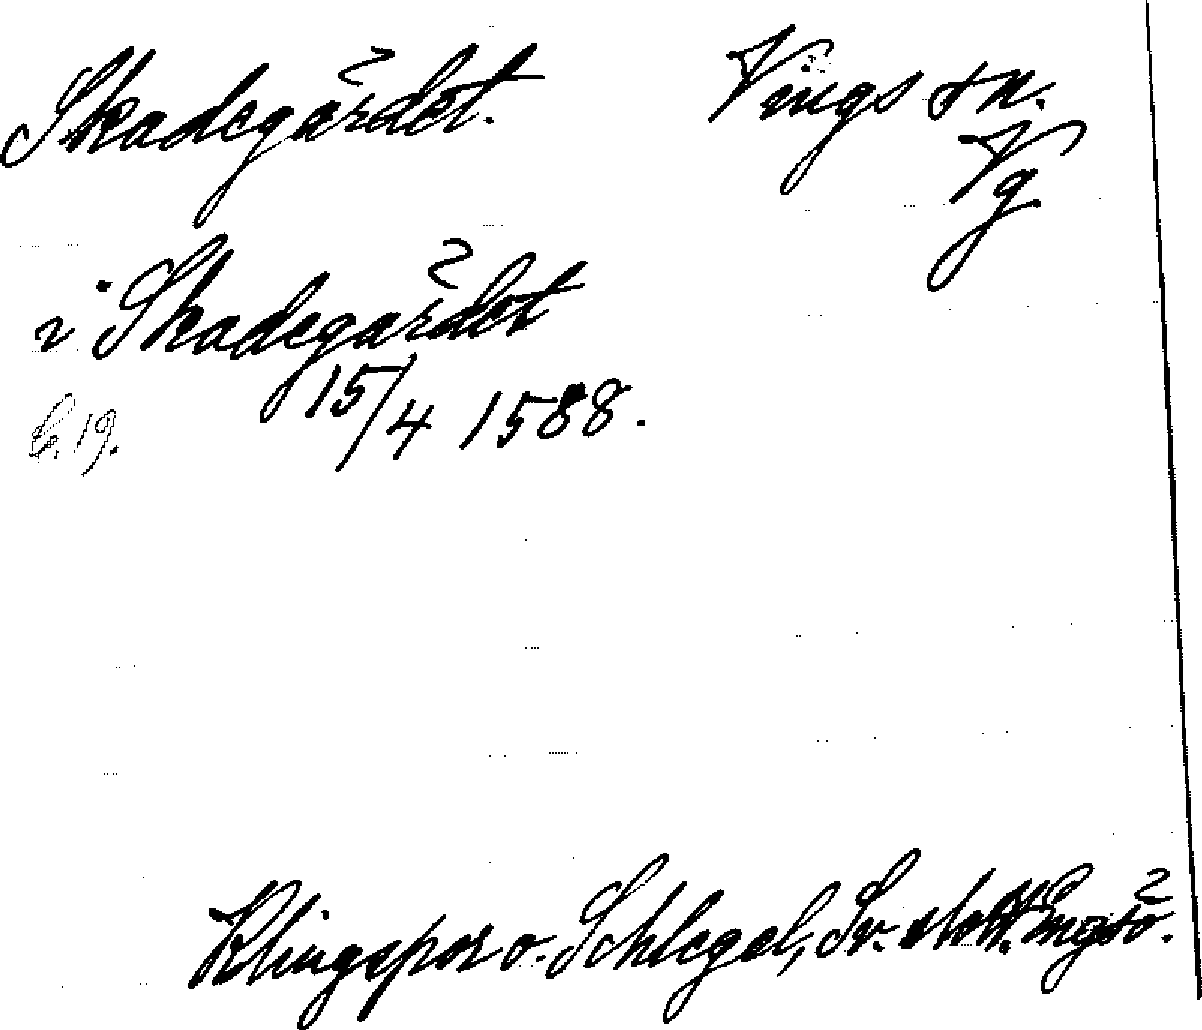 Skadegärdet. Vings sn.
Vg
i Skadegärdet
15/4 1588.
b. 19.
Klingspor o. Schlegel, Sv. slott. Engsö.